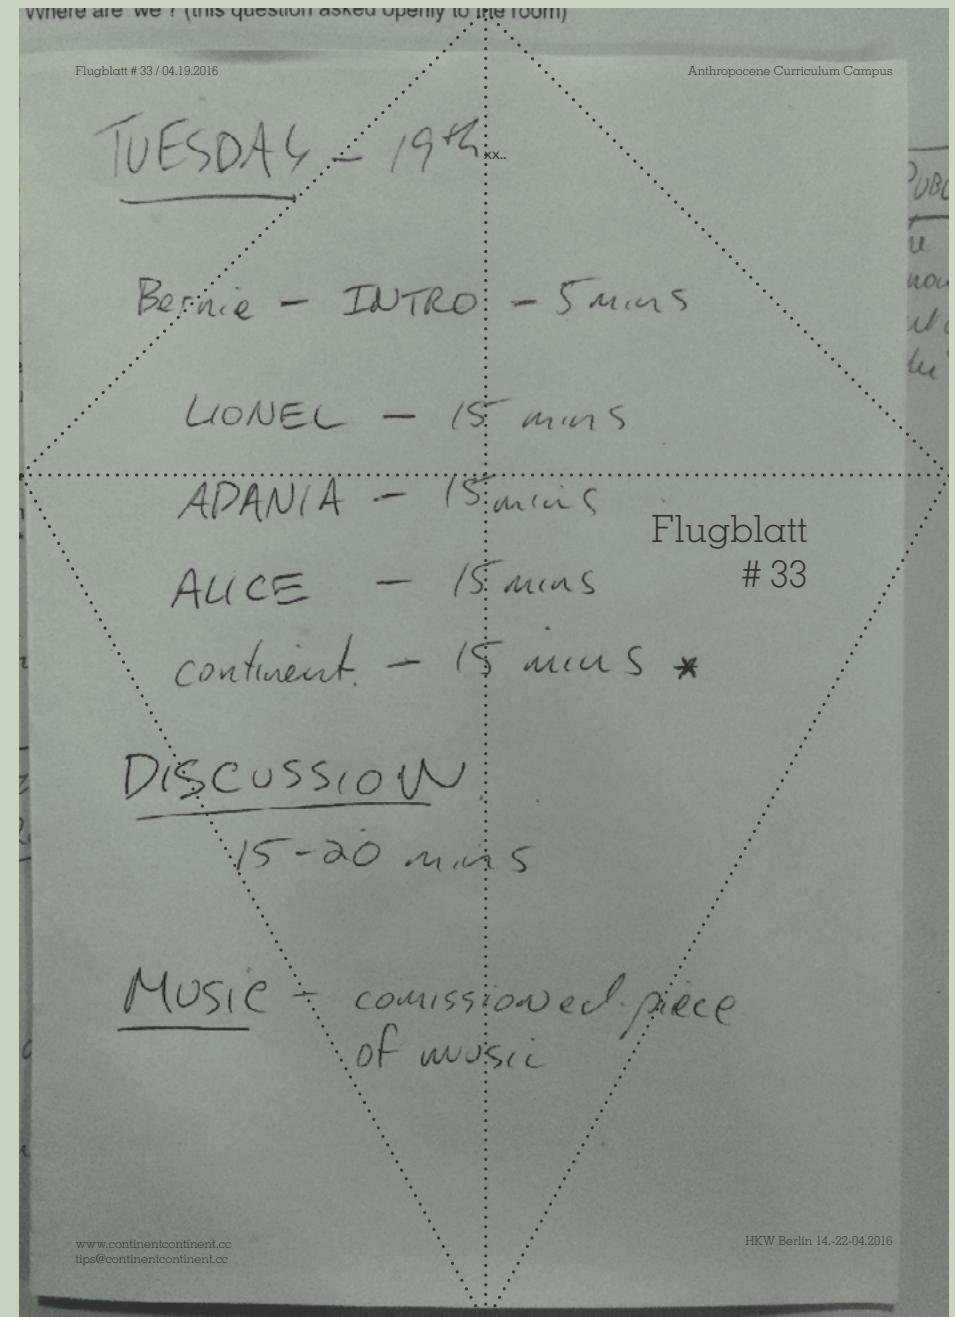 Where are 'we'? (this question asked openly to the room)
Flugblatt # 33 / 04.19.2016
Anthropocene Curriculum Campus
TUESDAY – 19th
xx..
Bernie – INTRO – 5 mins
LIONEL – 15 mins
ADANIA – 15 mins
Flugblatt
# 33
ALICE – 15 mins
continent. – 15 mins *
DISCUSSION
15-20 mins
MUSIC – comissioned piece
of music
www.continentcontinent.cc
tips@continentcontinent.cc
HKW Berlin 14.-22-04.2016